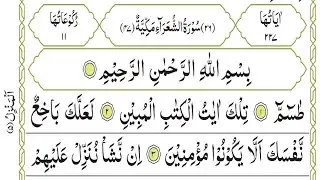 اٰيَاتُهَا ٢٢٧
(٢٦) سُوْرَةُ الشُّعَرَآءِ مَكِّيَّةٌ (٤٧)
رُكُوْعَاتُهَا ١١
بِسْمِ اللّٰهِ الرَّحْمٰنِ الرَّحِيْمِ
طٰسٓمّٓ ۝١ تِلْكَ اٰيٰتُ الْكِتٰبِ الْمُبِيْنِ ۝٢ لَعَلَّكَ بَاخِعٌ
نَّفْسَكَ اَلَّا يَكُوْنُوْا مُؤْمِنِيْنَ ۝٣ اِنْ نَّشَاْ نُنَزِّلْ عَلَيْهِمْ
اَلْمَنْزِلُ (٥)